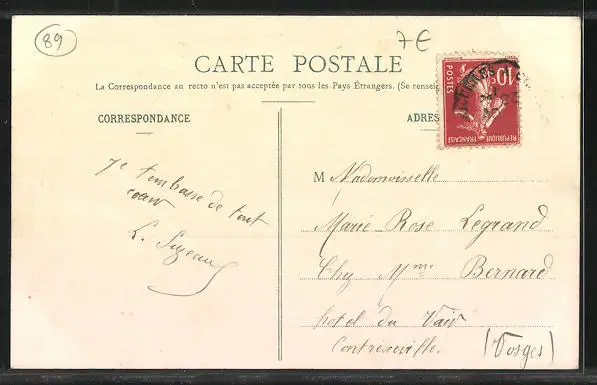 89
7€
CARTE POSTALE
La Correspondance au recto n'est pas acceptée par tous les Pays Étrangers. (Se renseig
CORRESPONDANCE
ADRES
10
POSTES
REPUBLIQUE FRANÇAISE
Je t'embrasse de tout
coeur
L. Suzeau
M Mademoiselle
Marie-Rose Legrand
Chy Mme Bernard
hotel du Vair
Contrexeville.
(Vosges)